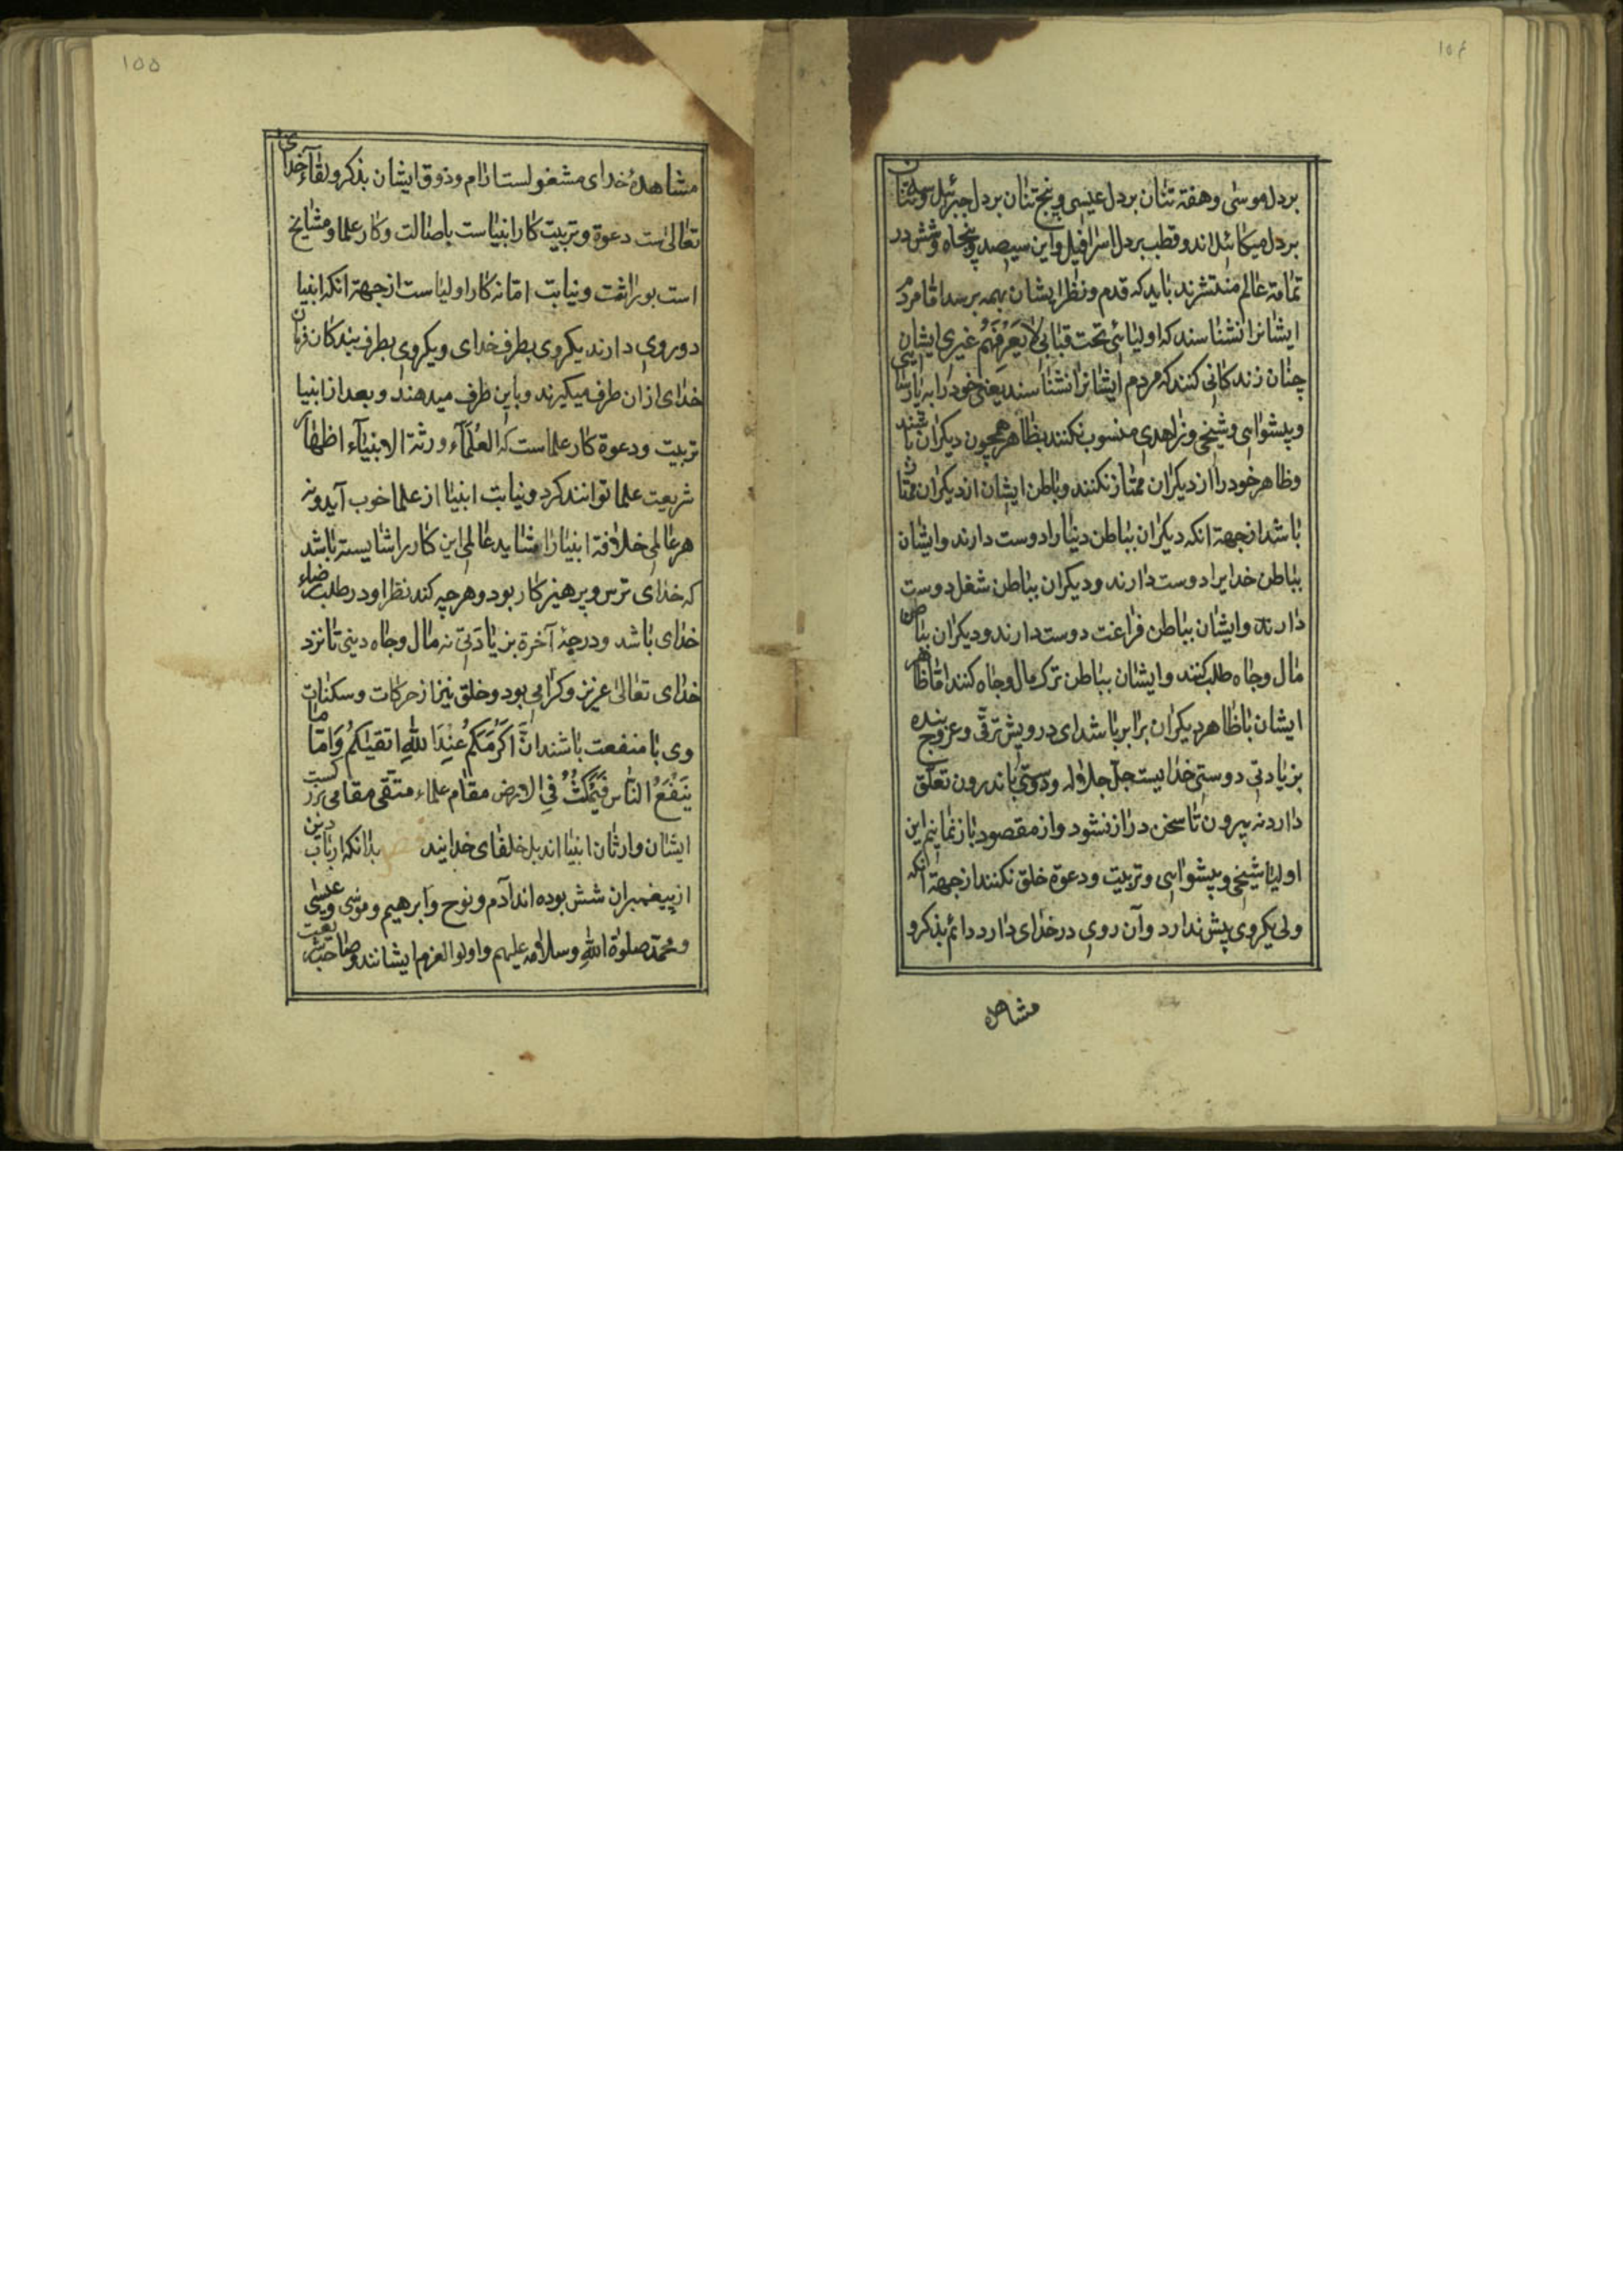 ۱۵۴
بردل موسٰی وهفتة تنان بردل عیسی وپنج تنان بردل جبرئیل وسه تنان
بردل میکائیل اند وقطب بردل اسرافیل واین سیصد وپنجاه وشش در
تمامة عالم منتشرند باید که قدم ونظر ایشان بهمه برسد امّا مردم
ایشانرا نشناسند که اولیائی تحت قبابی لا یَعرِفُهُم غیری ایشان
چنان زندکانی کنند که مردم ایشانرا نشناسند یعنی خود را به پارسایی
وپیشوایی وشیخی وزاهدی منسوب نکنند بظاهر همچون دیکران باشند
وظاهر خود را از دیکران ممتاز نکنند وباطن ایشان از دیکران ممتاز
باشد از جهة انکه دیکران بباطن دنیا را دوست دارند وایشان
بباطن خدایرا دوست دارند ودیکران بباطن شغل دوست
دارند وایشان بباطن فراغت دوست دارند ودیکران بباطن
مال وجاه طلب کنند وایشان بباطن ترک مال وجاه کنند امّا ظاهر
ایشان با ظاهر دیکران برابر باشد ای درویش ترقّی وعروج بنده
بزیادتی دوستی خدایست جلّ جلاله ودوستی باندرون تعلّق
دارد نه بیرون تا سخن دراز نشود واز مقصود باز نمانیم این
اولیا شیخی وپیشوایی وتربیت ودعوة خلق نکنند از جهة انکه
ولی یکروی پیش ندارد وآن روی در خدای دارد دائم بذکر و
مشاهده
۱۵۵
مشاهدهٔ خدای مشغولست ارام وذوق ایشان بذکر ولقآء خدای
تعالیٰ ست دعوة وتربیت کار انبیاست باصالت وکار علما ومشایخ
است بوراثت ونیابت امّا نه کار اولیاست از جهة انکه انبیا
دوروی دارند یکروی بطرف خدای ویکروی بطرف بندکان فرمان
خدای ازان طرف میکیرند وباین طرف میدهند وبعد از انبیا
تربیت ودعوة کار علماست که العُلَمآء ورثة الانبیآء اظهار
شریعت علما توانند کرد ونیابت انبیا از علما خوب آید ونه
هر عالمی خلافة انبیا را شاید عالمی این کار را شایسته باشد
که خدای ترس وپرهیزکار بود وهرچه کند نظر او در طلب رضاء
خدای باشد ودرجهٔ آخرة بزیادتی نه مال وجاه دینی تا نزد
خدای تعالیٰ عزیز وکرامی بود وخلق نیز از حرکات وسکنات
وی با منفعت باشند انَّ اَکرَمَکُم عِندَ اللهِ اتقیٰکُم وَامّا ما
یَنفَعُ النّاس فَیَمکُثُ فِی الارض مقام علماء متقی مقامی بزرکست
ایشان وارثان انبیا اند بل خلفای خدایند بدانکه ارباب دین
از پیغمبران شش بوده اند آدم ونوح وابرهیم وموسٰی وعیسٰی
ومحمّد صلوة اللهِ وسلامه علیهم واولوا العزم ایشانند وصاحب شریعت